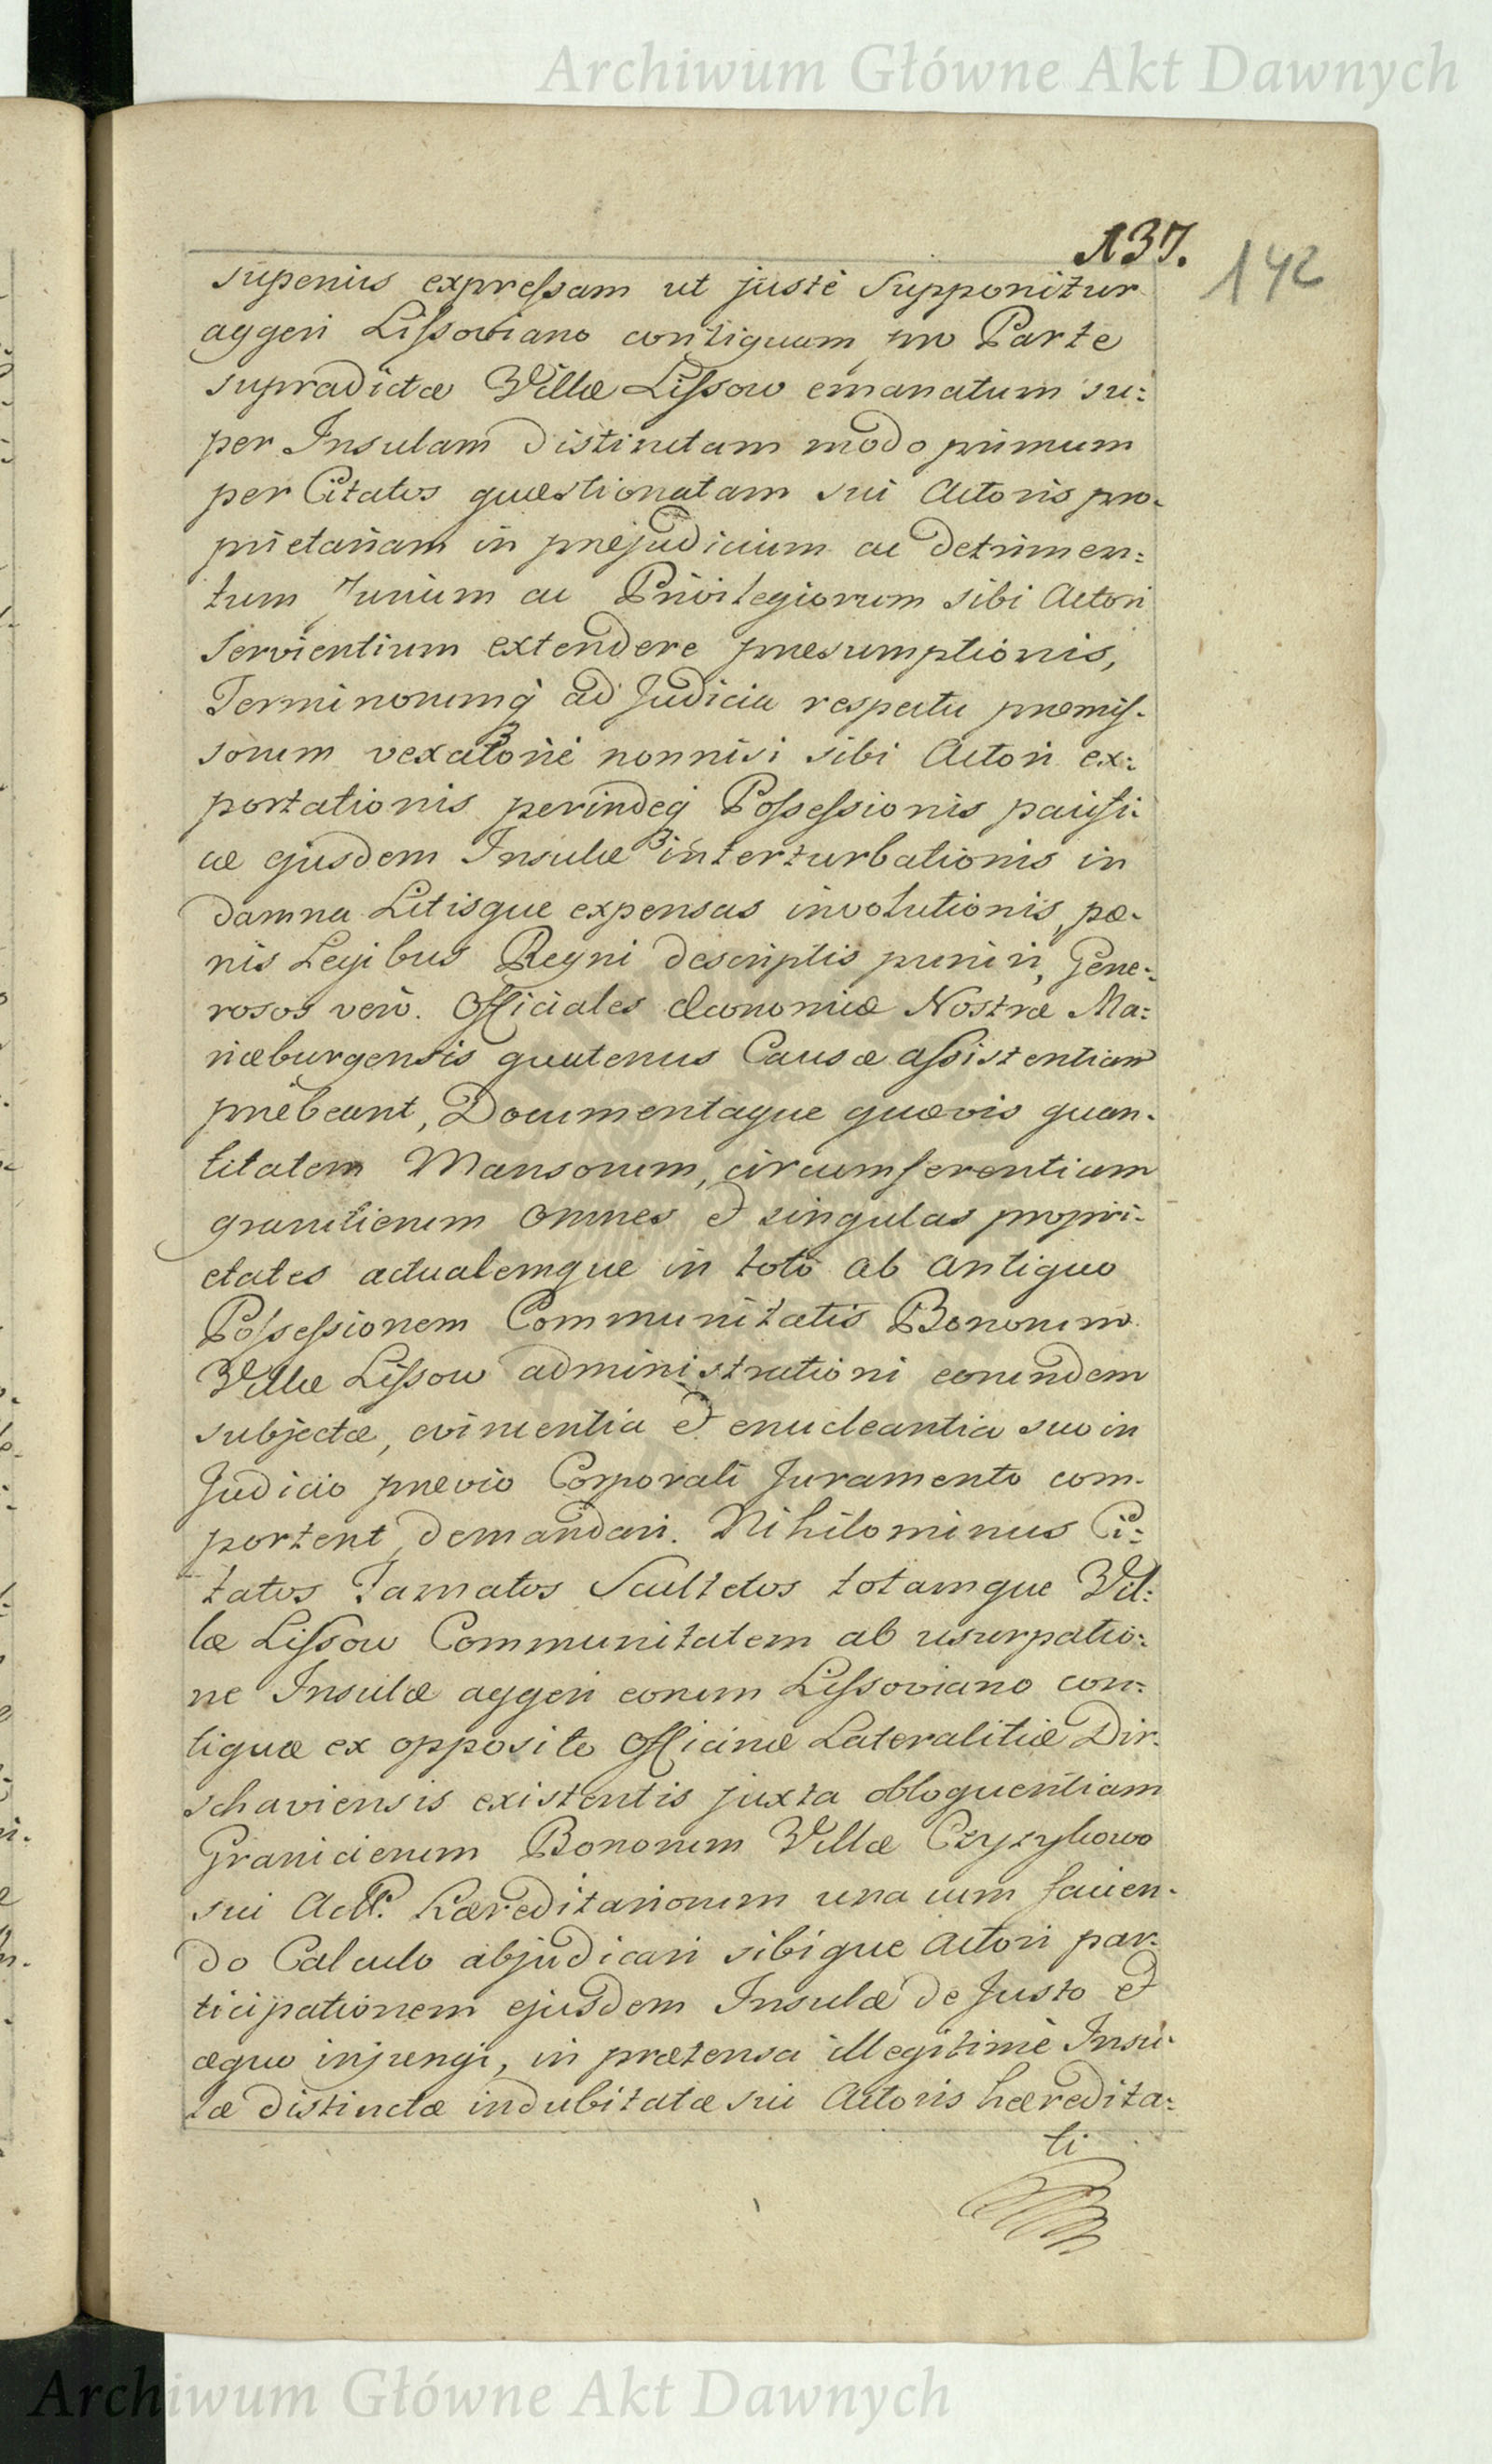 Archiwum Główne Akt Dawnych
137.
142
superius expressam ut justè Supponitur
aggeri Lissoviano contiguam pro Parte
supradictæ Villæ Lissow emanatum su:
per Insulam distinctam modo primum
per Citatos quæstionatam sui Actoris pro-
prietariam in præjudicium ac detrimen:
tum Jurium ac Privilegiorum sibi Actori
Servientium extendere præsumptionis,
Terminorumq̀ ad Judicia respectu præmis-
sorum vexatoriè nonnisi sibi Actori ex:
portationis perindeq̀ Possessionis pacifi:
cæ ejusdem Insulæ interturbationis in
damna Litisque expensas involutionis, pæ-
nis Legibus Regni descriptis puniri, Gene:
rosos verò. Officiales Œconomiæ Nostræ Ma:
riæburgensis quatenus Causæ assistentiam
præbeant, Documentaque quævis quan-
titatem Mansorum, circumferentiam
granicierum omnes et singulas propri-
etates actualemque in toto ab antiquo
Possessionem Communitatis Bonorum
Villæ Lissow administrationi eorundem
subjectæ, evincentia et enucleantia suo in
Judicio prævio Corporali Juramento com-
portent, demandari. Nihilominus Ci:
tatos Famatos Scultetos totamque Vil:
læ Lissow Communitatem ab usurpatio:
ne Insulæ aggeri eorum Lissoviano con:
tiguæ ex opposito Officinæ Lateralitiæ Dir-
schaviensis existentis juxta obloquentiam
Granicierum Bonorum Villæ Czyzykowo
sui Act: hæreditariorum una cum facien-
do Calculo abjudicari sibique Actori par-
ticipationem ejusdem Insulæ de Justo et
æquo injungi, in prætensa illegitimè Insu-
læ distinctæ indubitatæ sui Actoris hæredita:
ti
Archiwum Główne Akt Dawnych